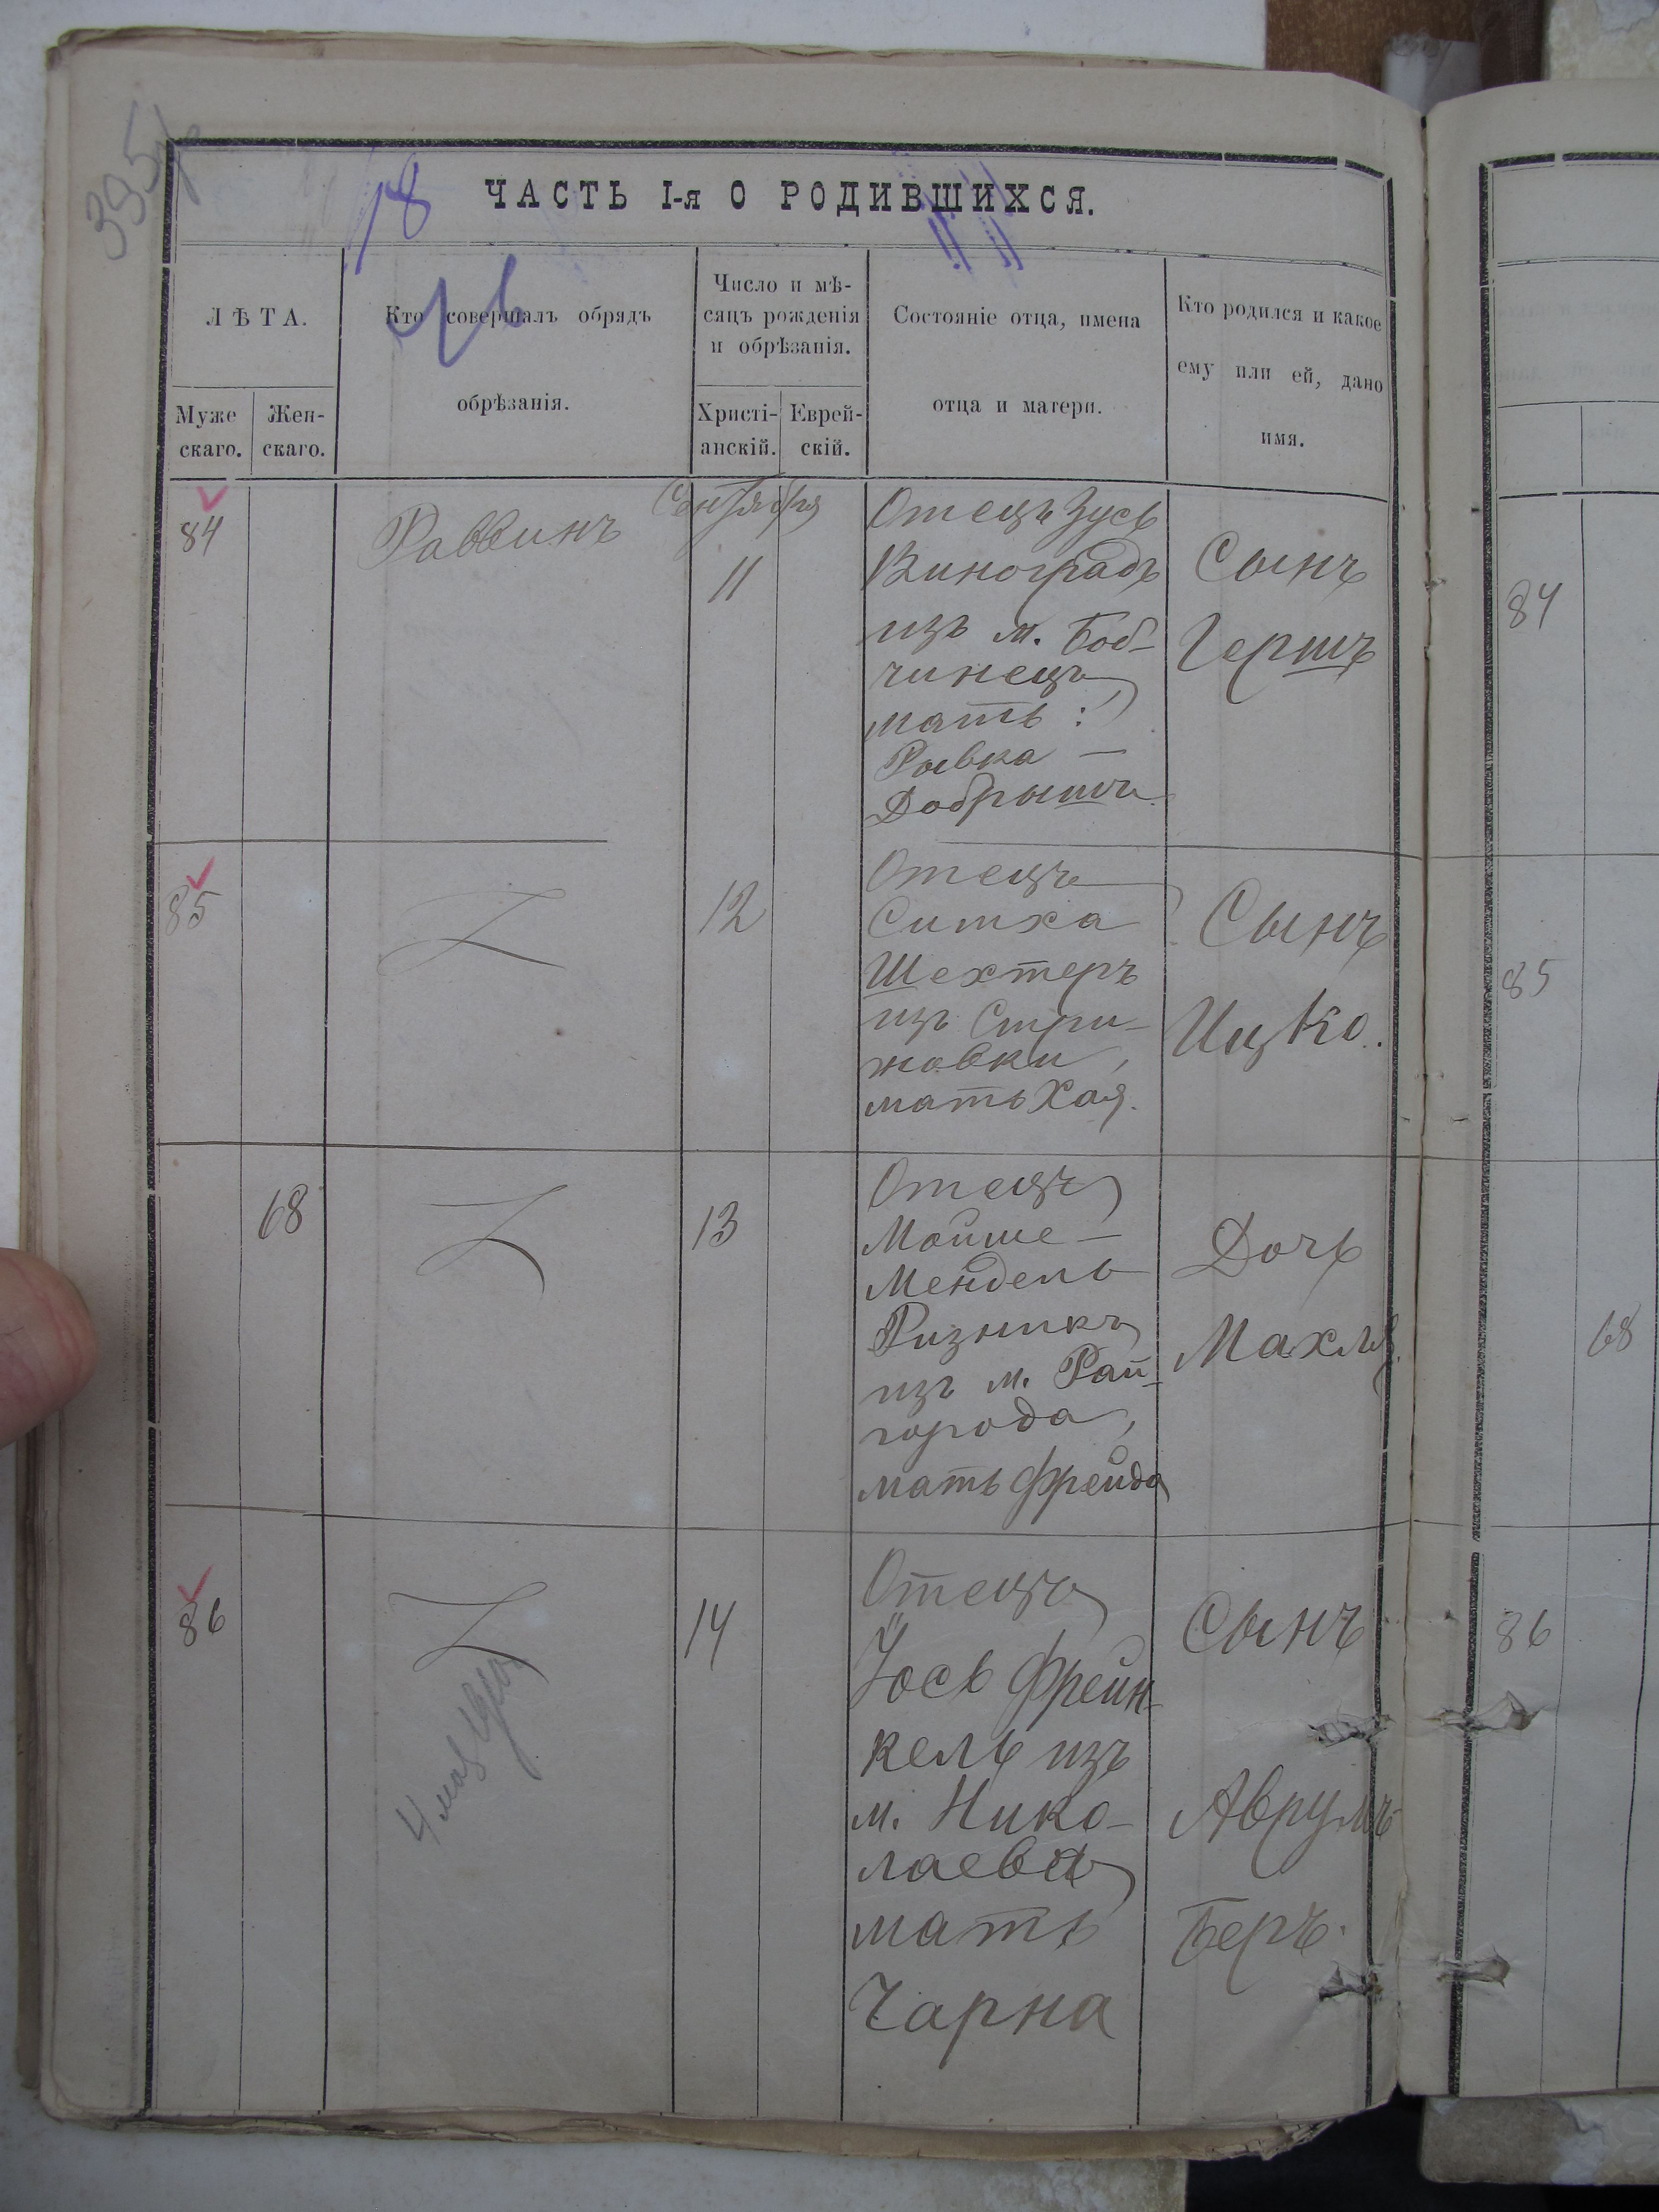 395
18
ЧАСТЬ I-я О РОДИВШИХСЯ.
ЛѢТА.
Муже
скаго.
Жен-
скаго.
Кто совершалъ обрядъ
обрѣзанія.
Число и мѣ-
сяцъ рожденія
и обрѣзанія.
Христі-
анскій.
Еврей-
скій.
Состояніе отца, имена
отца и матери.
Кто родился и какое
ему или ей, дано
имя.
84
Раввинъ
Сентября
11
Отецъ Зусь
Виноградъ
изъ м. Боб-
чинецъ
мать:
Рывка -
Добрышъ.
Сынъ
Гершъ
84
85
12
Отецъ
Симха
Шехтеръ
изъ Стри-
жовки,
мать Хая.
Сынъ
Ицко.
85
68
13
Отецъ
Мойше -
Мендель
Ризникъ
изъ м. Рай-
города,
мать Фрейда
Дочь
Махля.
68
86
14
Отецъ
Іось Фрейн-
кель изъ
м. Нико-
лаева
мать
Чарна
Сынъ
Аврумъ
Беръ.
86
4